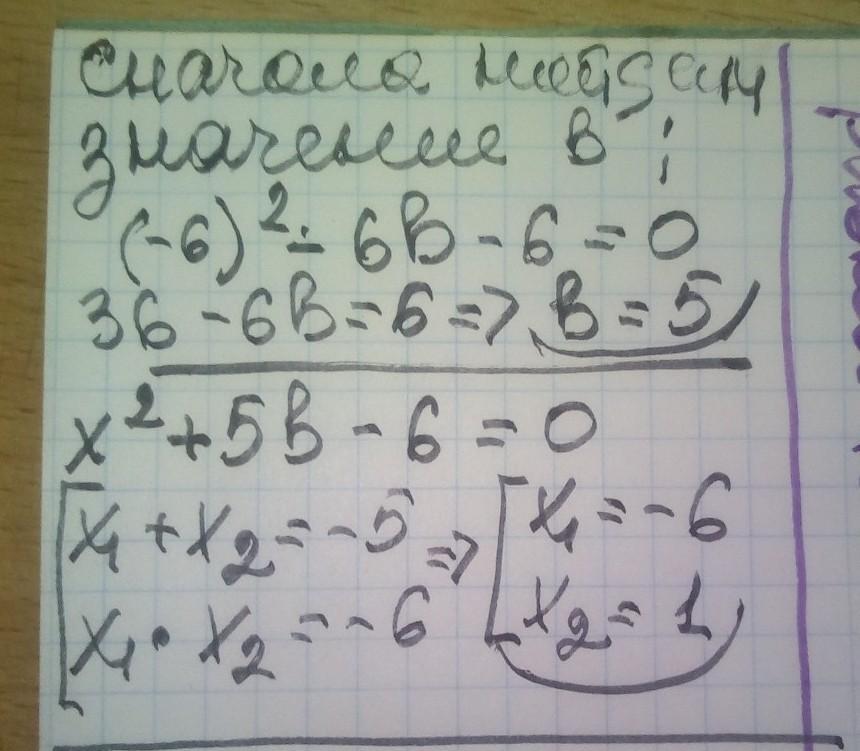 сначала найдем
значение в:
(-6)² - 6в - 6 = 0
36 - 6в = 6 => в = 5
x² + 5в - 6 = 0
[x₁ + x₂ = -5 => [x₁ = -6
x₁ · x₂ = -6 x₂ = 1